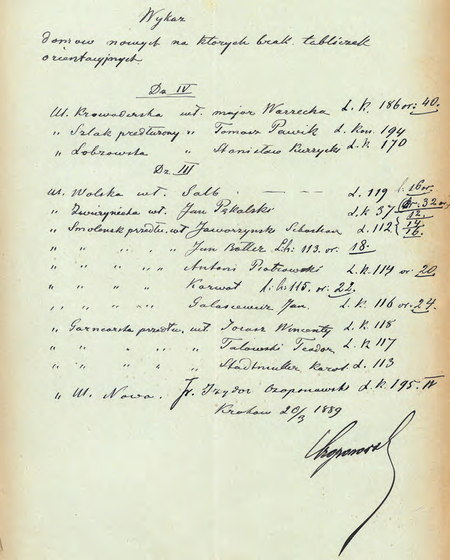 Wykaz
domów nowych na których brak tabliczek
orientacyjnych
Dz IV
Ul. Krowoderska wł. major Warzecka L. K. 186 or. 40.
" Szlak przedłużony " Tomasz Pawik L. kon. 194
" Łobzowska " Stanisław Kurzycki L. K 170
Dz III
Ul. Wolska wł. Salb. — — — L. 119 16 or.
" Zwierzyniecka wł. Jan L. K 37 or. 32
" Smoleńsk przedłu. wł Jaworzynski L. 112 12 14 16.
" " " " Jan Botler L. k. 113. or. 18.
" " " " Antoni Piotrowski L. K. 114 or. 20
" " " " Karwat L. k. 115. or. 22.
" " " " Galasiewicz Jan L. K. 116 or. 24.
" Garncarska przedłu. wł Wincenty L. K 118
" " " " Talowski Teodor L. K 117
" " " " Stadtmuller Karol L. 113
" Ul. Nowa. Izydor L. K. 195. IV
Kraków 20/3 1889